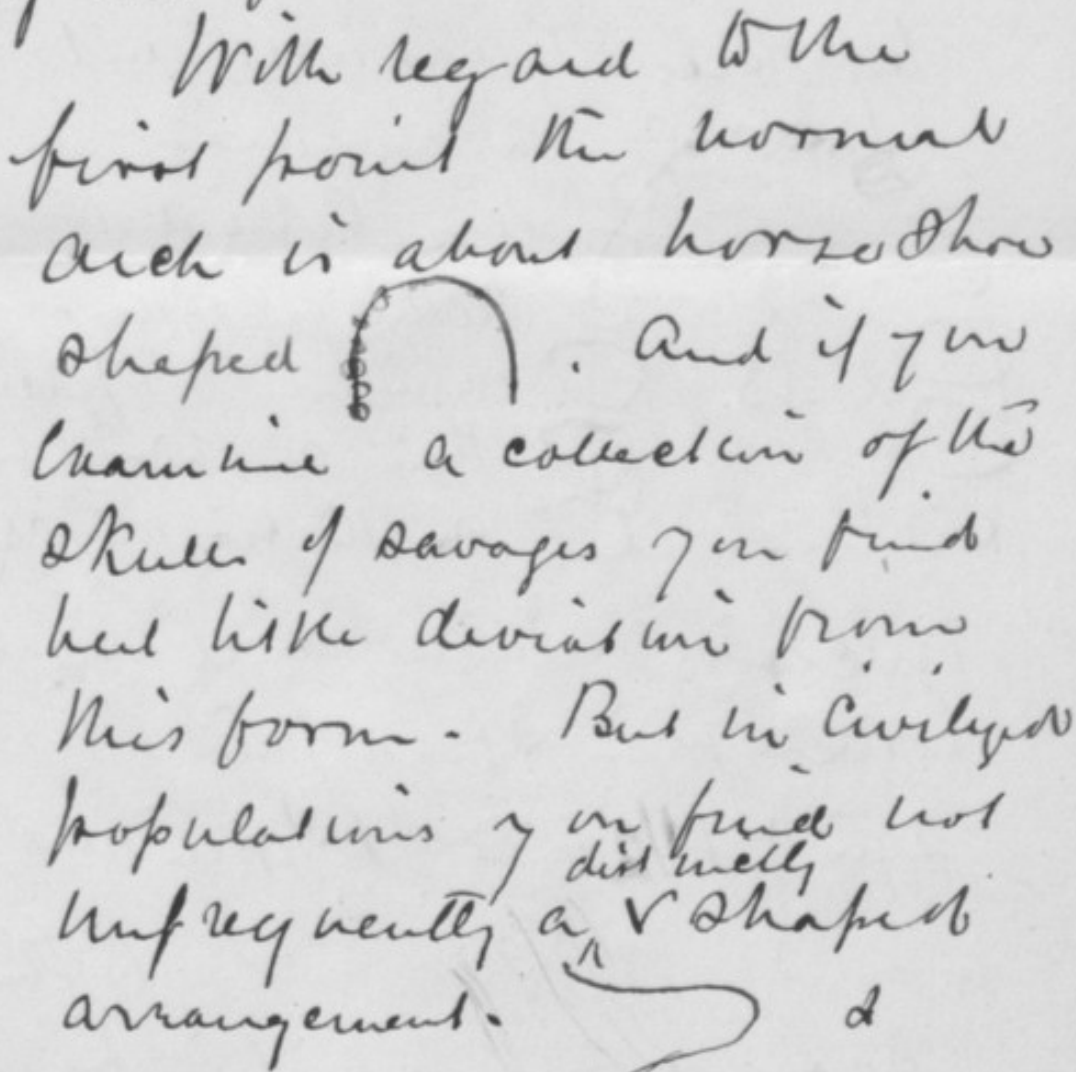 With regard to the
first point the normal
arch is about horse shoe
shaped . And if you
examine a collection of the
skulls of savages you find
but little deviation from
this form. But in civilized
populations you find not
distinctly
unfrequently a ^ V shaped
arrangement.